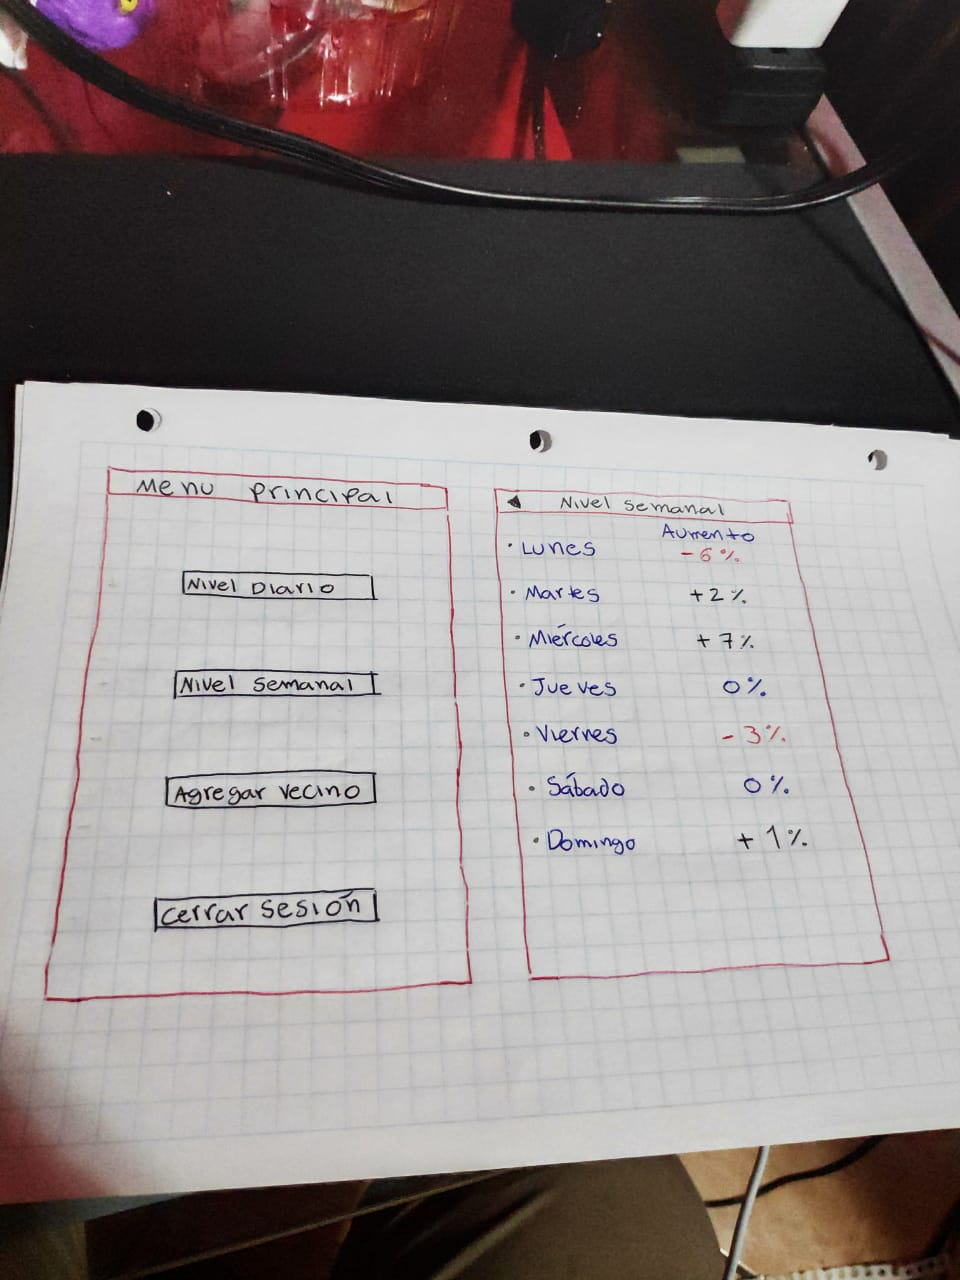 Menu principal
Nivel Diario
Nivel semanal
Agregar vecino
cerrar sesión
Nivel semanal
Aumento
• Lunes -6%
• Martes +2%
• Miércoles +7%
• Jueves 0%
• Viernes -3%
• Sábado 0%
• Domingo +1%